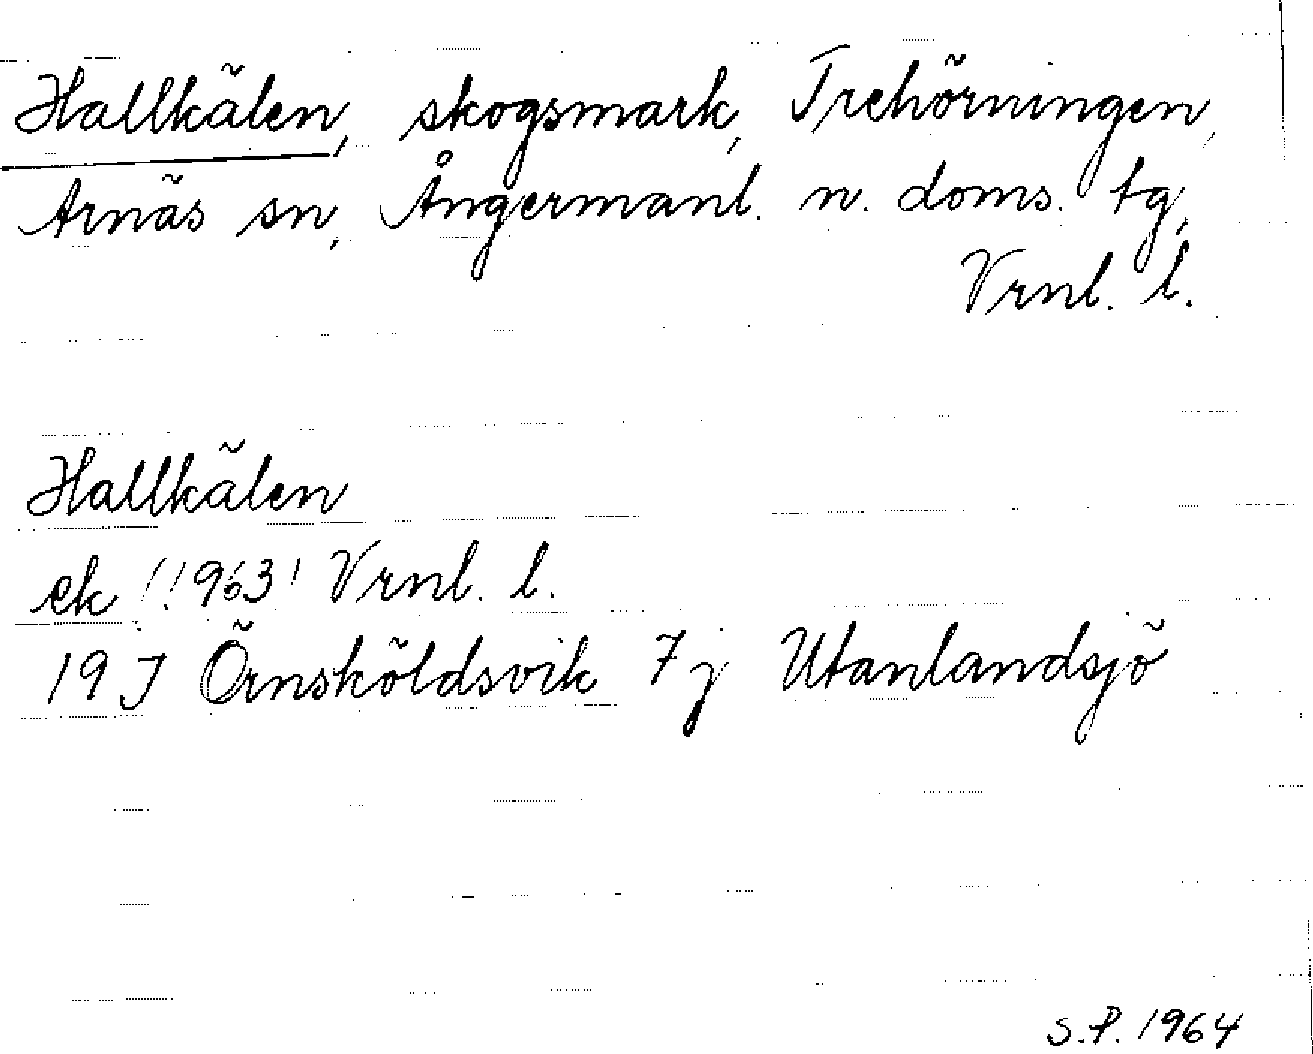 Hallkälen, skogsmark, Trehörningen,
Arnäs sn, Ångermanl. n. doms. tg,
Vrnl. l.
Hallkälen
ek 1963 Vrnl. l.
19 J Örnsköldsvik 7 j Utanlandsjö
S.P. 1964